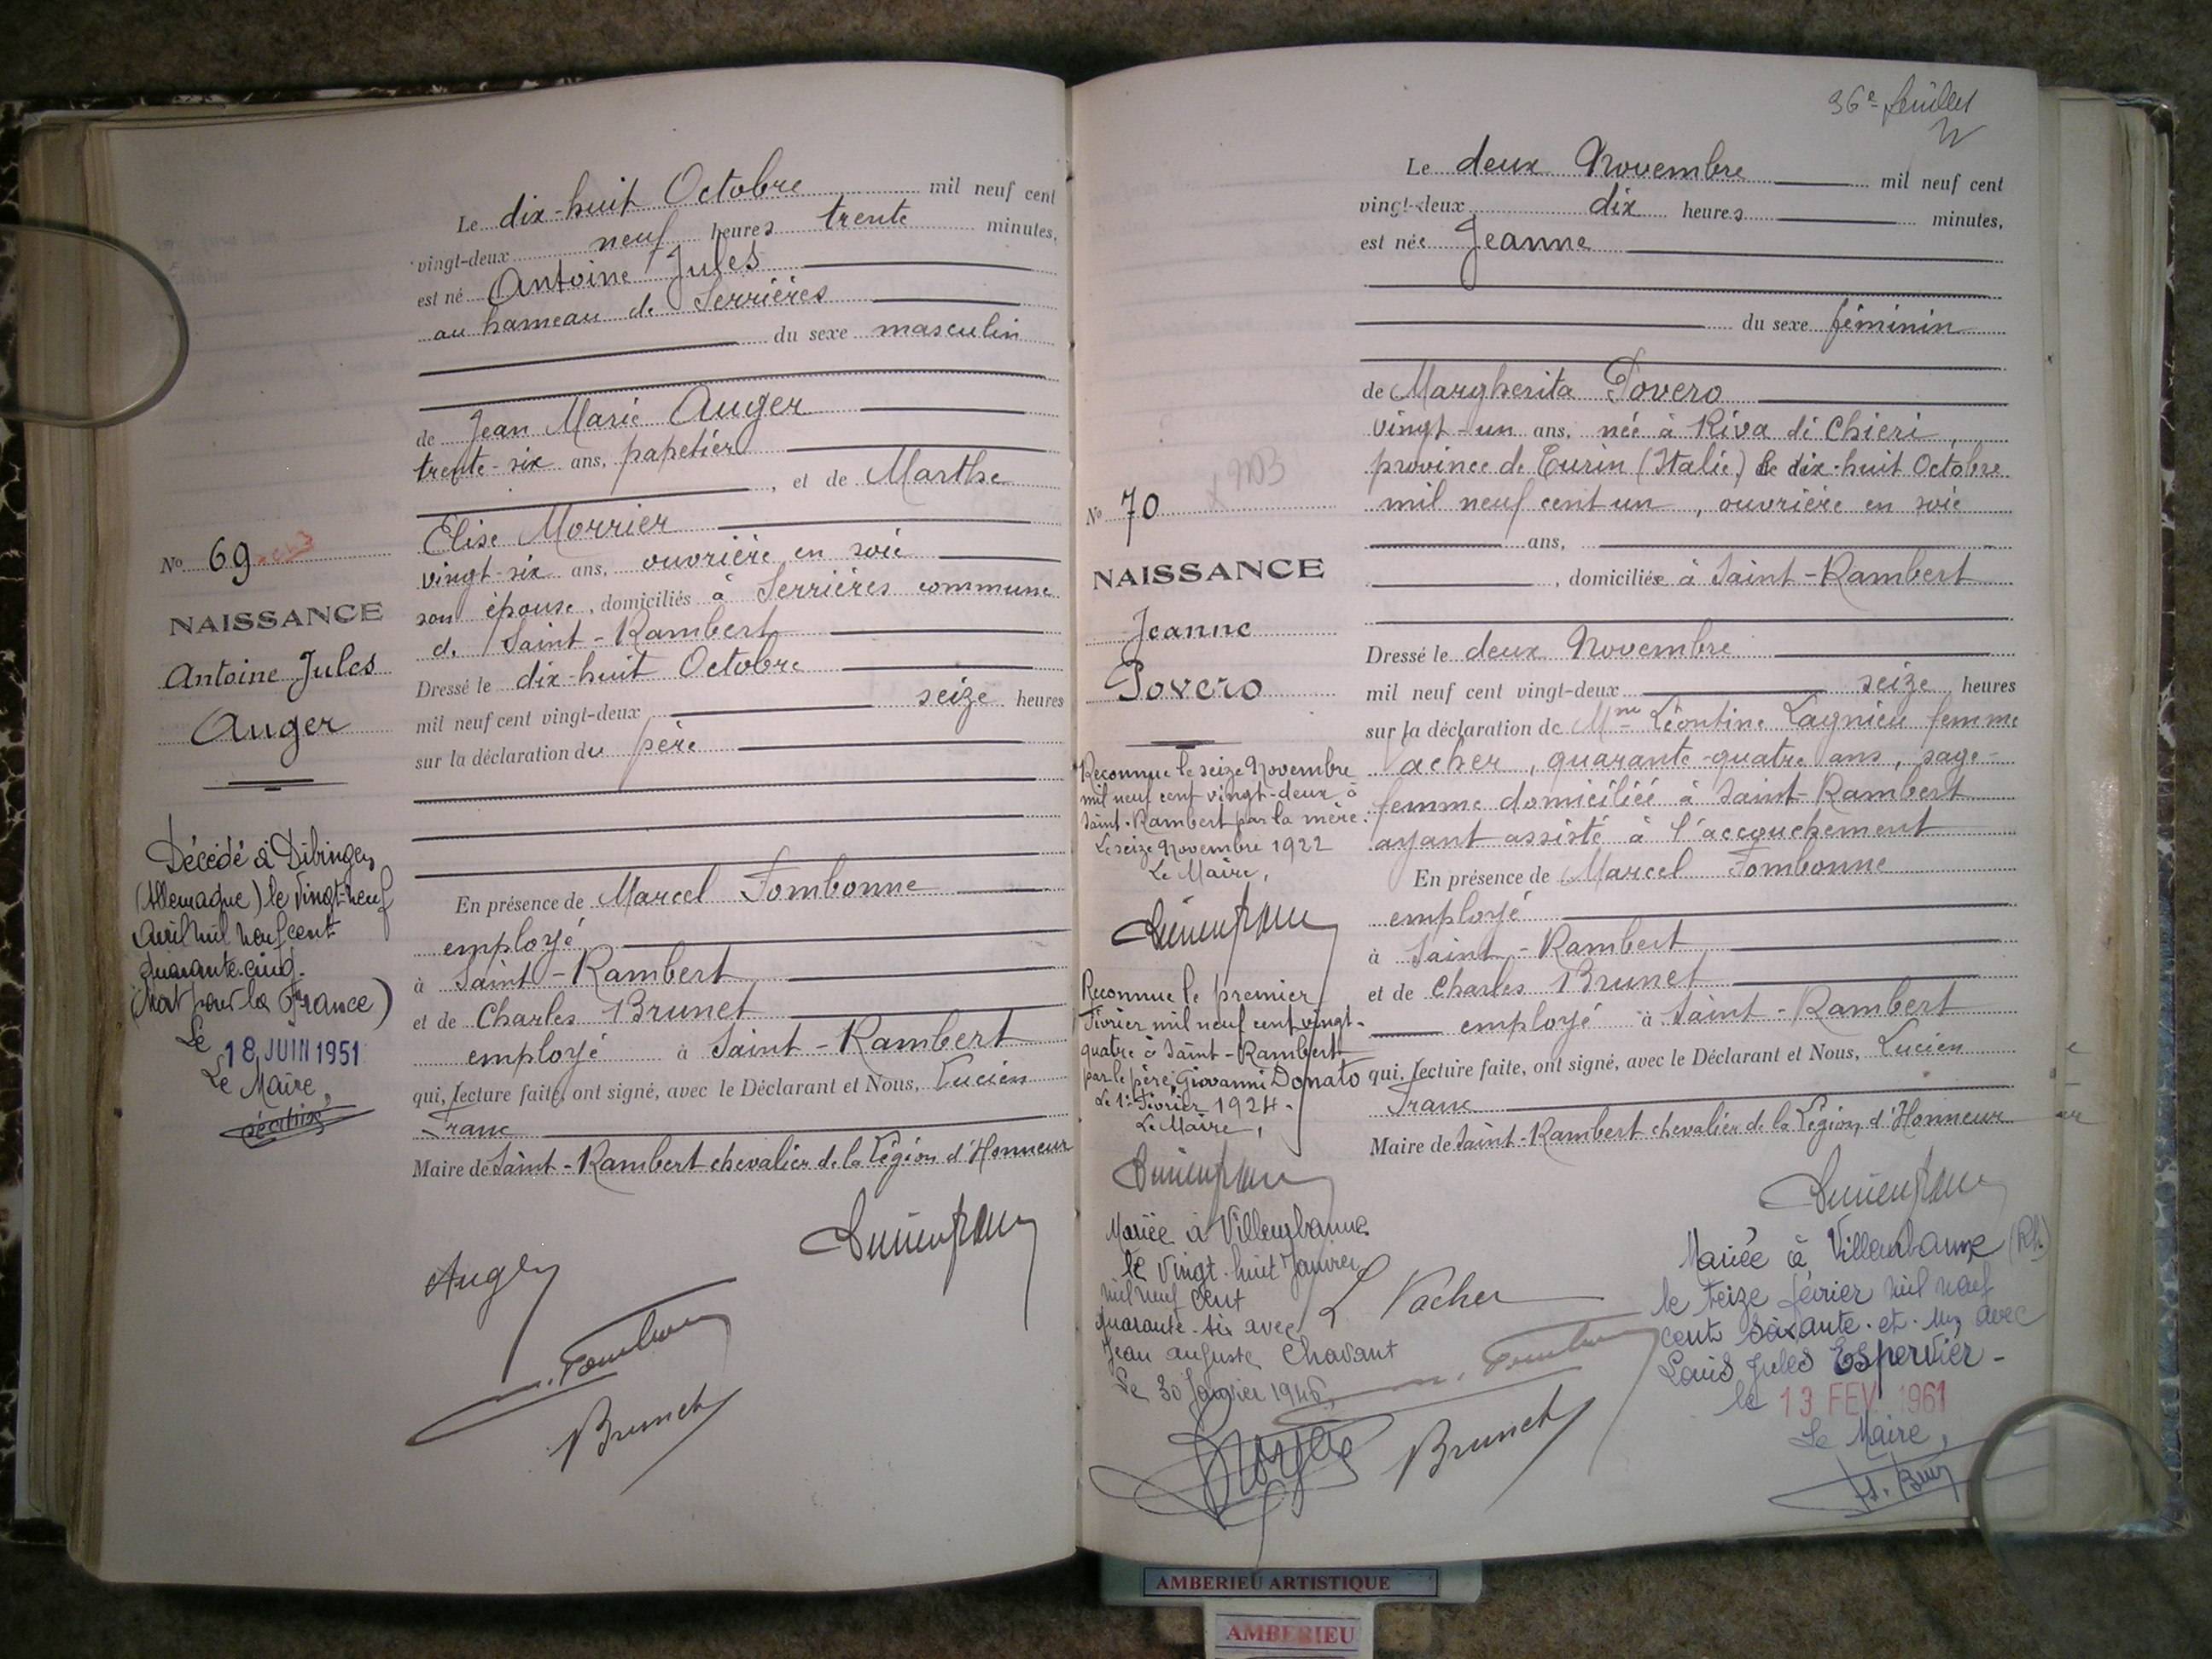 Le dix-huit Octobre mil neuf cent
vingt-deux neuf heures trente minutes,
est né Antoine Jules
au hameau de Serrières
du sexe masculin
de Jean Marie Auger
trente-six ans, papetier
, et de Marthe
Elise Morrier
vingt-six ans, ouvrière en soie
son épouse, domiciliés à Serrières commune
de Saint-Rambert
Dressé le dix-huit Octobre
mil neuf cent vingt-deux seize heures
sur la déclaration du père
En présence de Marcel Fombonne
employé
à Saint-Rambert
et de Charles Brunet
employé à Saint-Rambert
qui, lecture faite, ont signé, avec le Déclarant et Nous, Lucien
Franc
Maire de Saint-Rambert chevalier de la Légion d'Honneur
Auger
Lucien franc
M. Fombonne
Brunet
No 69
NAISSANCE
Antoine Jules
Auger
Décédé à
(Allemagne) le vingt-neuf
avril mil neuf cent
quarante-cinq.
(Mort pour la France)
Le 18 JUIN 1951
Le Maire,
36e feuillet
Le deux Novembre mil neuf cent
vingt-deux dix heures minutes,
est née Jeanne
du sexe féminin
de Margherita Povero
vingt-un ans, née à Riva di Chieri,
province de Turin (Italie) le dix-huit Octobre
mil neuf cent un, ouvrière en soie
ans,
, domiciliée à Saint-Rambert
Dressé le deux Novembre
mil neuf cent vingt-deux seize heures
sur la déclaration de Mme Léontine Lagnieu femme
Vacher, quarante-quatre ans, sage-
femme domiciliée à Saint-Rambert
ayant assisté à l'accouchement
En présence de Marcel Fombonne
employé
à Saint-Rambert
et de Charles Brunet
employé à Saint-Rambert
qui, lecture faite, ont signé, avec le Déclarant et Nous, Lucien
Franc
Maire de Saint-Rambert chevalier de la Légion d'Honneur
Lucien franc
L Vacher
M. Fombonne
Brunet
No 70
NAISSANCE
Jeanne
Povero
Reconnue le seize Novembre
mil neuf cent vingt-deux à
Saint-Rambert par la mère.
Le seize Novembre 1922
Le Maire,
Lucien franc
Reconnue le premier
Février mil neuf cent vingt-
quatre à Saint-Rambert
par le père Giovanni Donato
Le 1er Février 1924.
Le Maire,
Lucien franc
Mariée à Villeurbanne
le vingt-huit Janvier
mil neuf cent
quarante-six avec
Jean Auguste Chavant
Le 30 Janvier 1946
Mariée à Villeurbanne (Rh.)
le treize février mil neuf
cent soixante-et-un avec
Louis Jules Espervier-
le 13 FEV 1961
Le Maire,
AMBERIEU ARTISTIQUE
AMBERIEU